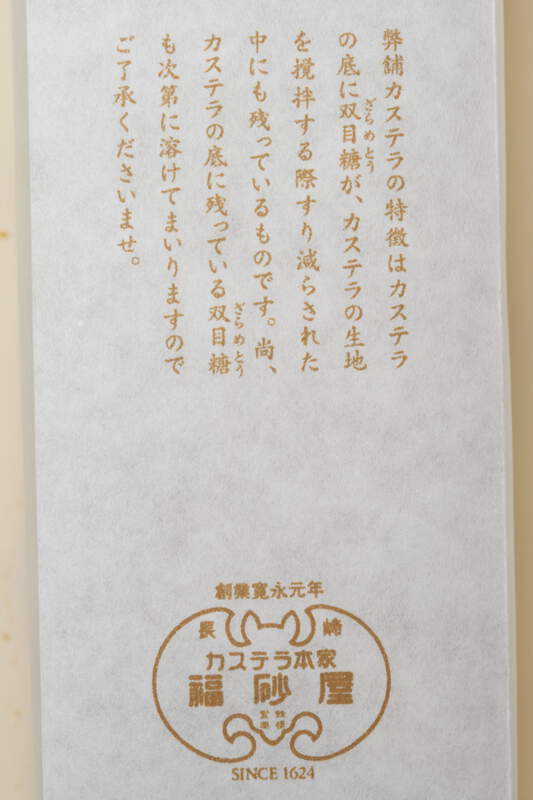 弊舗カステラの特徴はカステラ
の底に双目糖が、カステラの生地
ざらめとう
を撹拌する際すり減らされた
中にも残っているものです。尚、
カステラの底に残っている双目糖
ざらめとう
も次第に溶けてまいりますので
ご了承くださいませ。
創業寛永元年
長崎
カステラ本家
福砂屋
SINCE 1624